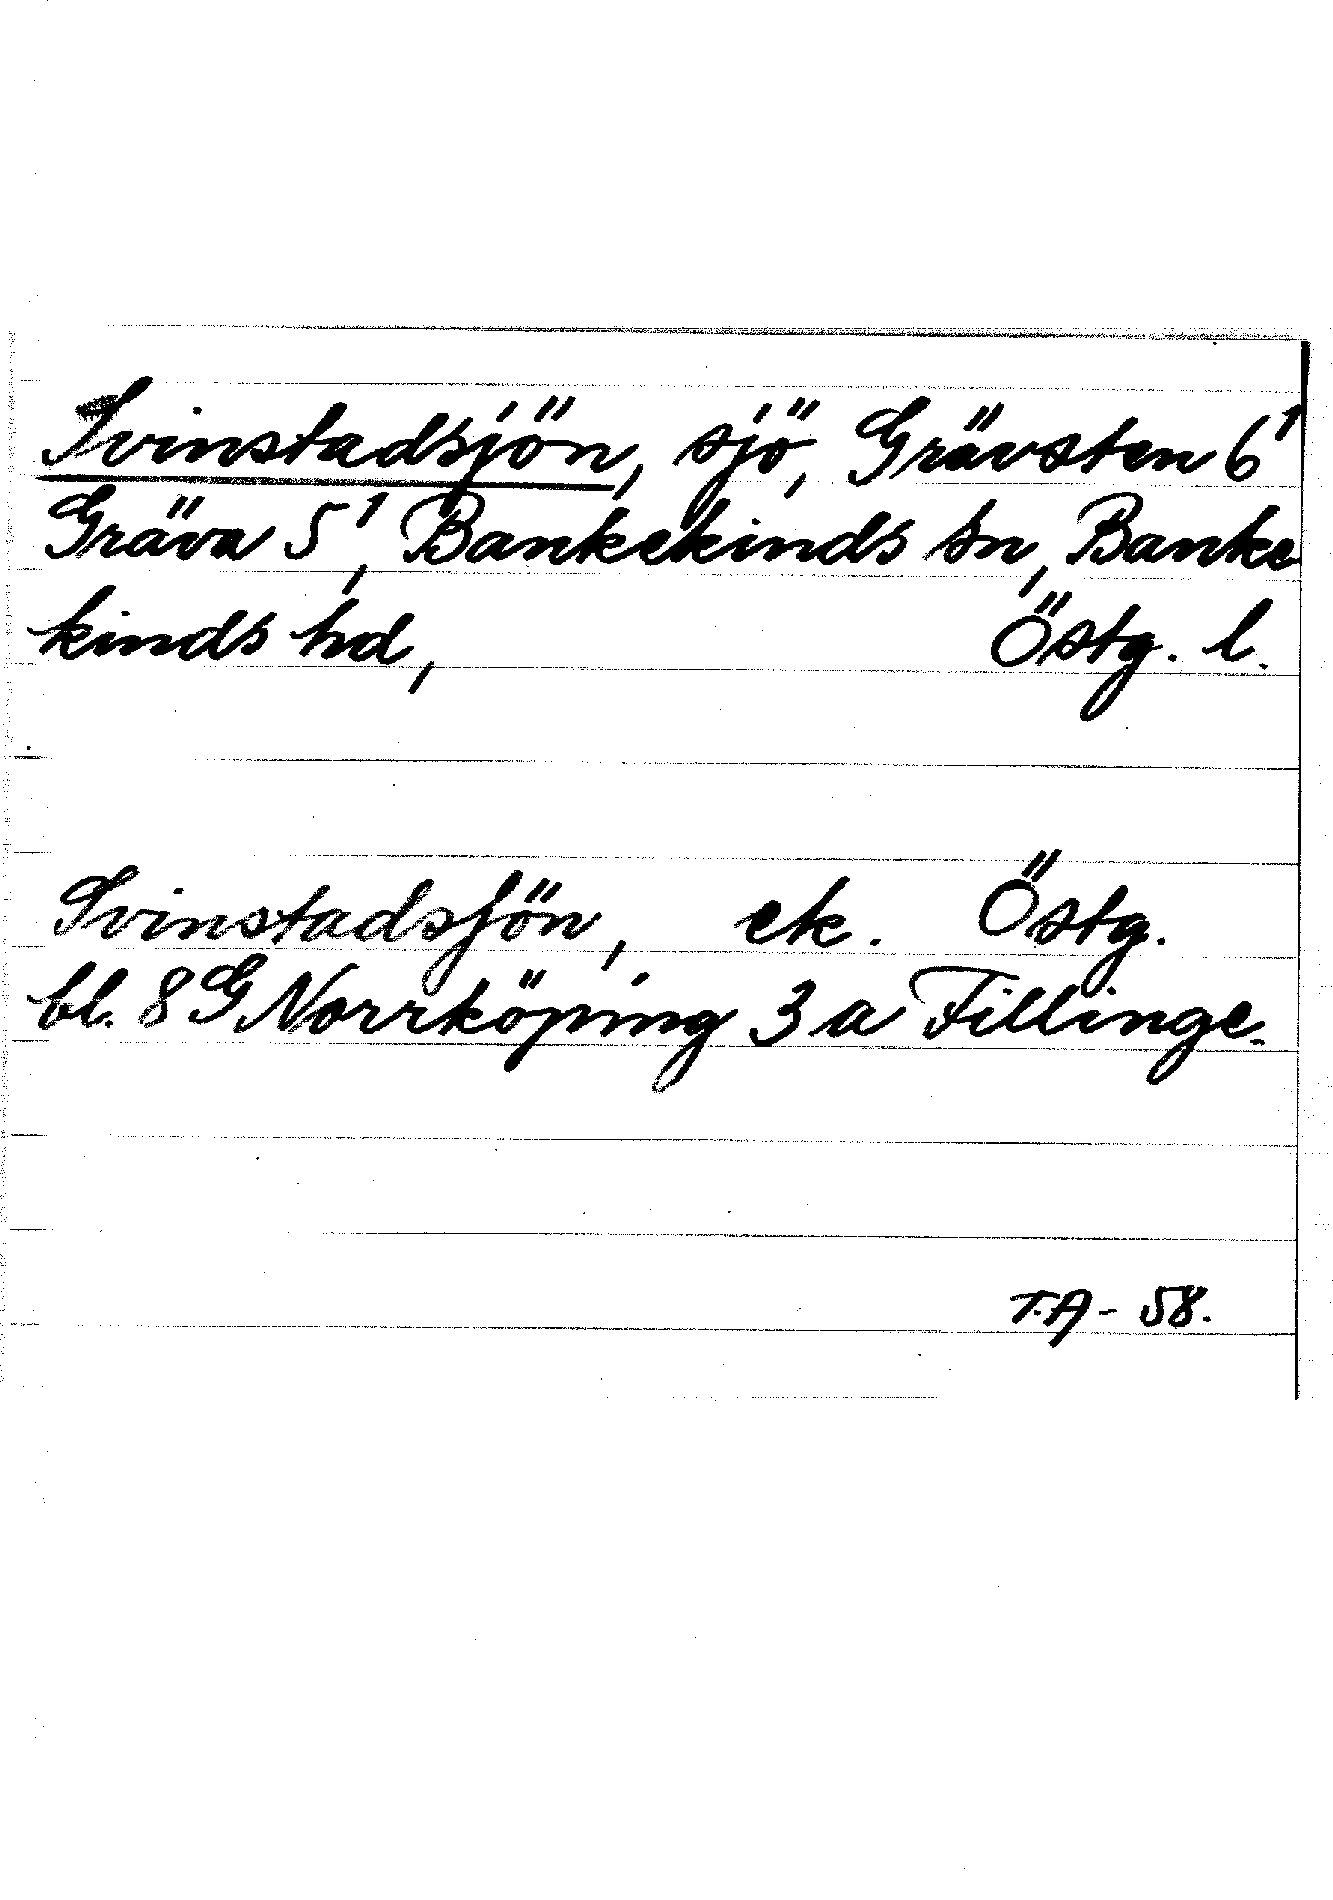 Svinstadsjön, sjö, Grävsten 6¹
Gräva 5¹, Bankekinds sn, Banke
kinds hd, Östg. l.
Svinstadsjön, ek. Östg.
bl. 8 G Norrköping 3 a Fillinge.
T.A - 58.